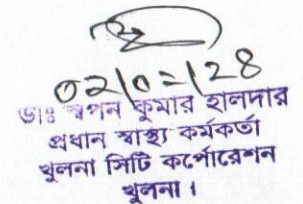 ডাঃ স্বপন কুমার হালদার
প্রধান স্বাস্থ্য কর্মকর্তা
খুলনা সিটি কর্পোরেশন
খুলনা।